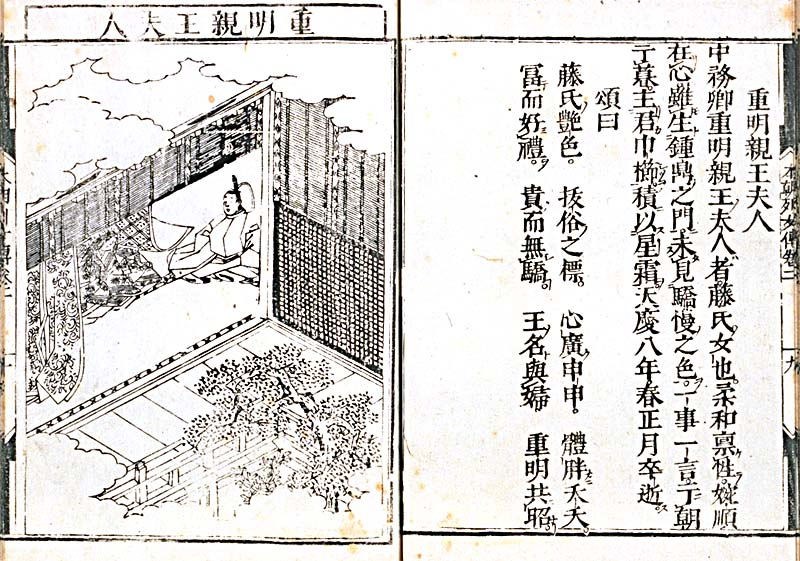 重明親王夫人
中務卿重明親王夫人者藤氏女也。柔和禀性。婉順
在心雖生鍾鼎之門。未見驕慢之色。一事一言于朝
于暮。主君巾櫛積以星霜天慶八年春正月卒逝。
頌曰
藤氏艶色。 抜俗之標。 心廣申申。 體胖夭夭
冨而好禮。 貴而無驕。 王名與婦 重明共昭
重明親王夫人